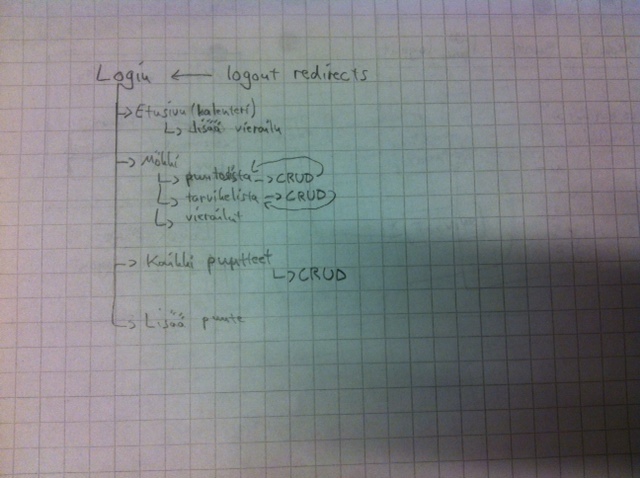 Login ← logout redirects
→ Etusivu (kalenteri)
↳ lisää vierailu
→ Mökki
↳ puutelista → CRUD
↳ tarvikelista → CRUD
↳ vierailut
→ Kaikki puutteet
↳ CRUD
↳ Lisää puute